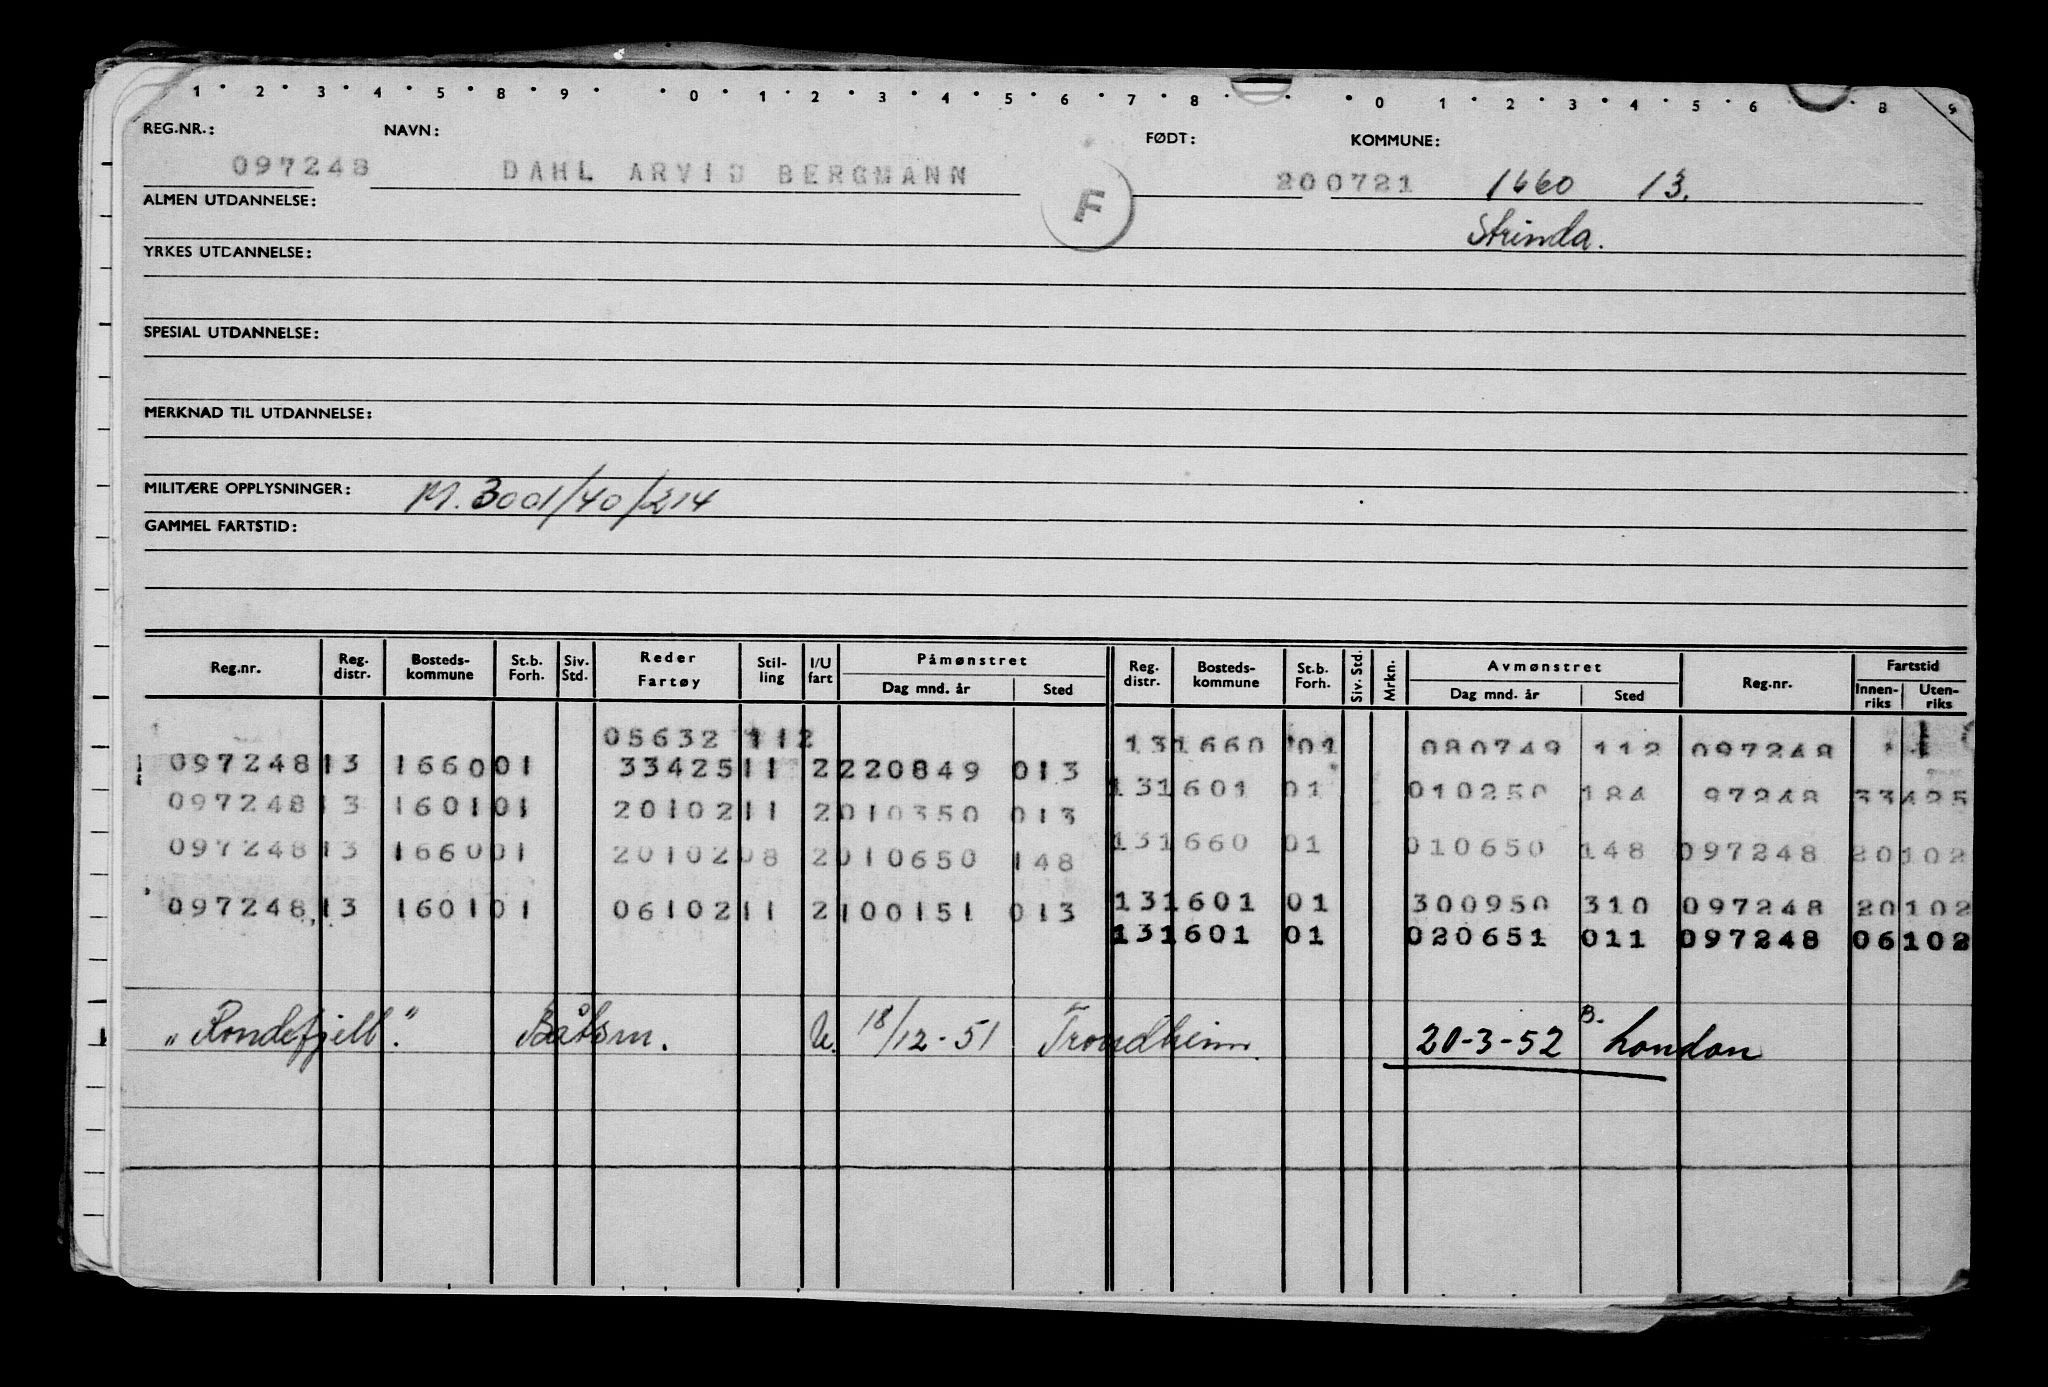 1 · 2 · 3 · 4 · 5 · 8 · 9 · · 0 · 1 · 2 · 3 · 4 · 5 · 6 · 7 · 8 · · · 0 1 · 2 · 3 · 4 · 5 · 6 · · 8
REG.NR.: NAVN: FØDT: KOMMUNE:
097248 DAHL ARVID BERGMANN 200721 1660 13.
F
ALMEN UTDANNELSE:
Strinda.
YRKES UTDANNELSE:
SPESIAL UTDANNELSE:
MERKNAD TIL UTDANNELSE:
MILITÆRE OPPLYSNINGER: M. 3001/40/214
GAMMEL FARTSTID:
Reg.nr. Reg. distr. Bosteds-kommune St.b. Forh. Siv. Std. Reder Fartøy Stil-ling I/U fart Påmønstret Dag mnd. år Sted Reg. distr. Bosteds-kommune St.b. Forh. Siv. Std. Mrkn. Avmønstret Dag mnd. år Sted Reg.nr. Fartstid Innen-riks Uten-riks
05632 112 131660 01 080749 112 097248
097248 13 1660 01 33425 11 2 220849 013
131601 01 010250 184 97248 33425
097248 13 1601 01 20102 11 2 010350 013
131660 01 010650 148 097248 20102
097248 13 1660 01 20102 08 2 010650 148
131601 01 300950 310 097248 20102
097248 13 1601 01 06102 11 2 100151 013
131601 01 020651 011 097248 06102
"Rondefjell". Båtsm. U. 18/12-51 Trondheim. 20-3-52 B. London